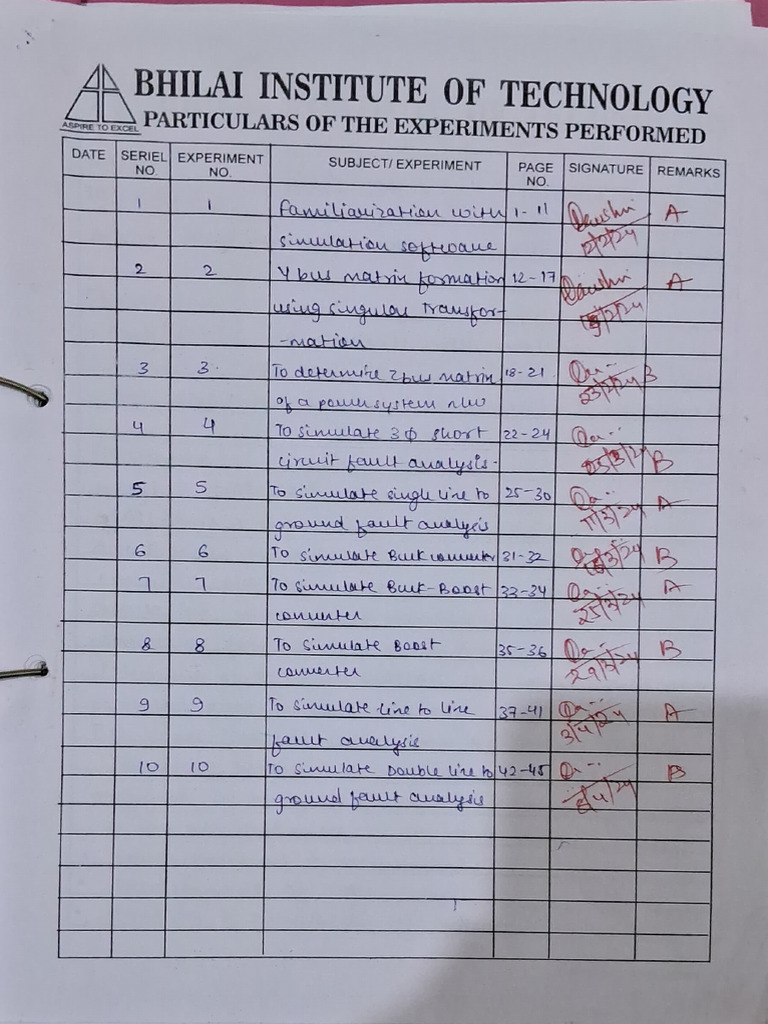 BHILAI INSTITUTE OF TECHNOLOGY
ASPIRE TO EXCEL
PARTICULARS OF THE EXPERIMENTS PERFORMED
DATE SERIEL NO. EXPERIMENT NO. SUBJECT/ EXPERIMENT PAGE NO. SIGNATURE REMARKS
1 1 Familiarization with 1-11 A
simulation software 12/2/24
2 2 Y bus matrix formation 12-17 A
using singular Transfor-
-mation
3 3. To determine Zbus matrix 18-21 B
of a power system n/w 23/2/24
4 4 To simulate 3Φ short 22-24
circuit fault analysis- B
5 5 To simulate single line to 25-30 A
ground fault analysis 11/3/24
6 6 To simulate Buck converter 31-32 B
7 7 To simulate Buck-Boost 33-34 A
converter 25/3/24
8 8 To simulate Boost 35-36 B
converter 29/3/24
9 9 To simulate line to line 37-41 A
fault analysis 3/4/24
10 10 To simulate Double line to 42-45 B
ground fault analysis